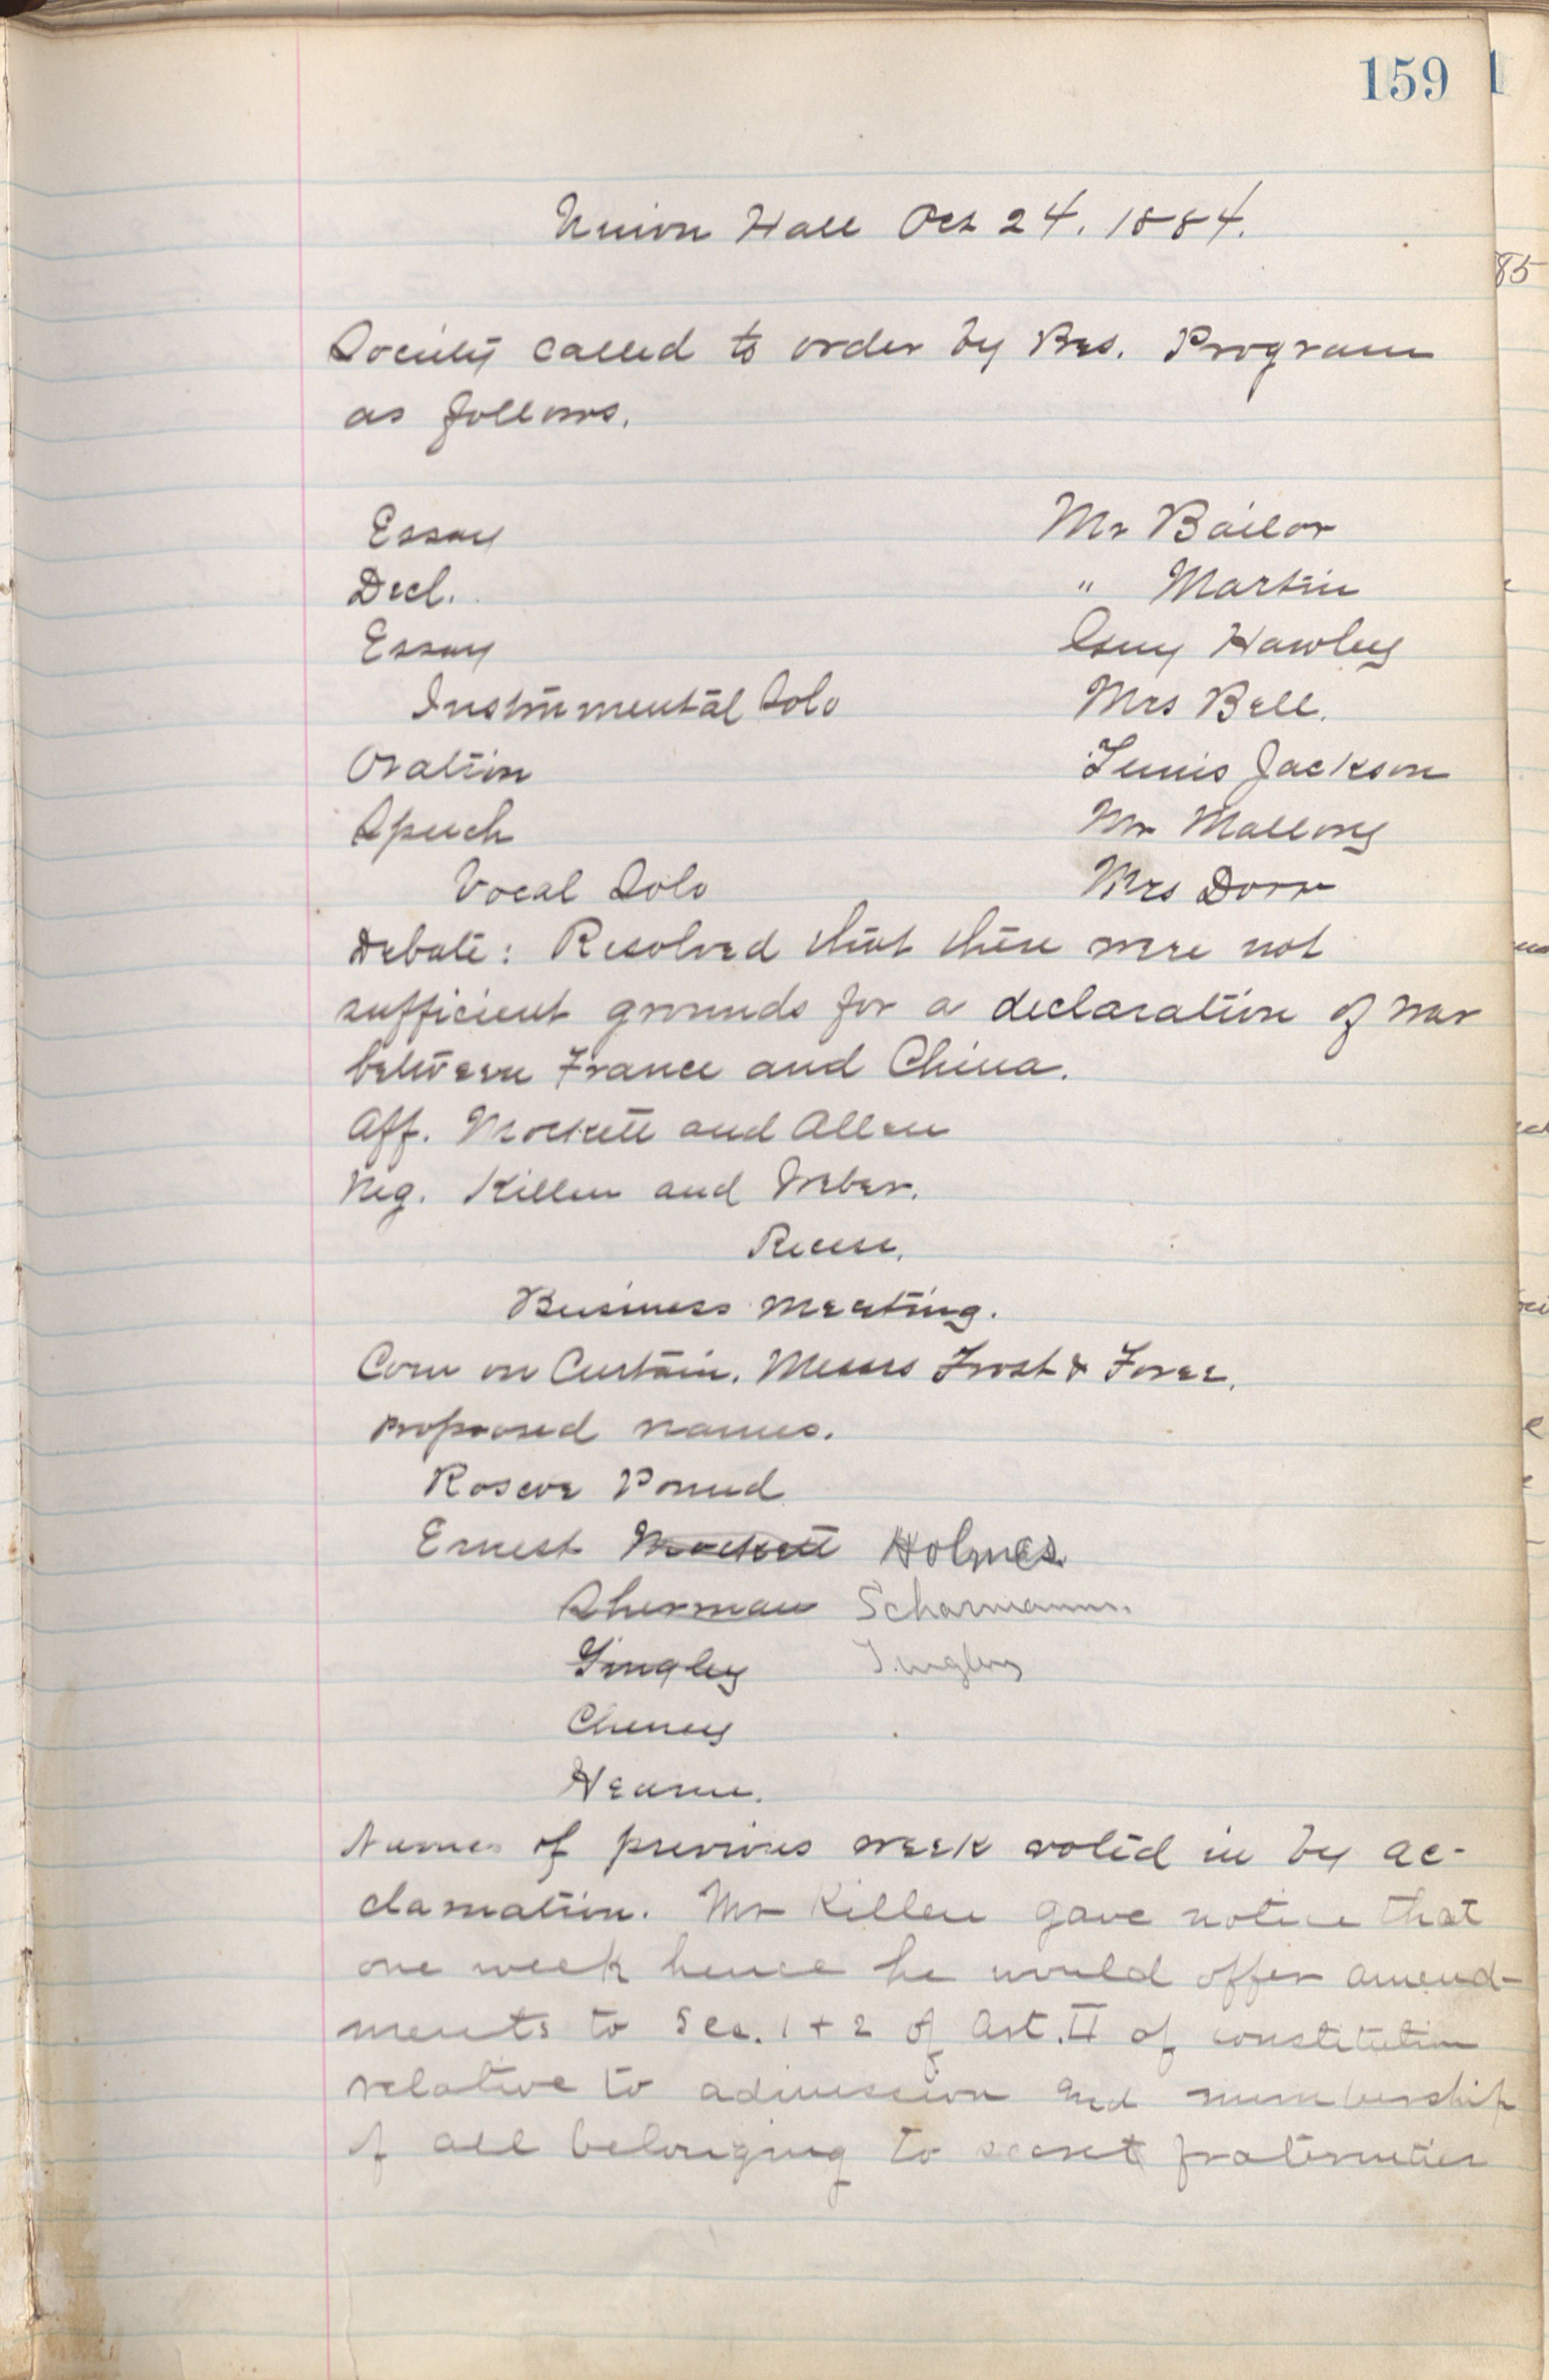 159
Union Hall Oct 24. 1884.
Society called to order by Pres. Program
as follows.
Essay Mr Bailor
Decl. " Martin
Essay Guy Hawley
Instrumental Solo Mrs Bell.
Oration Tennis Jackson
Speech Mr Mallory
Vocal Solo Mrs Dorr
Debate: Resolved that there were not
sufficient grounds for a declaration of war
between France and China.
Aff. Mockett and Allen
Neg. Killen and Weber.
Recess.
Business Meeting.
Com on Curtain. Messrs Frost & Foree.
Proposed names.
Roscoe Pound
Ernest Mockett Holmes.
Sherman Scharmann.
Tingley Tingley
Cheney
Hearne.
Names of previous week voted in by ac-
clamation. Mr Killen gave notice that
one week hence he would offer amend-
ments to Sec. 1 + 2 of Art. II of constitution
relative to admission and membership
of all belonging to secret fraternities